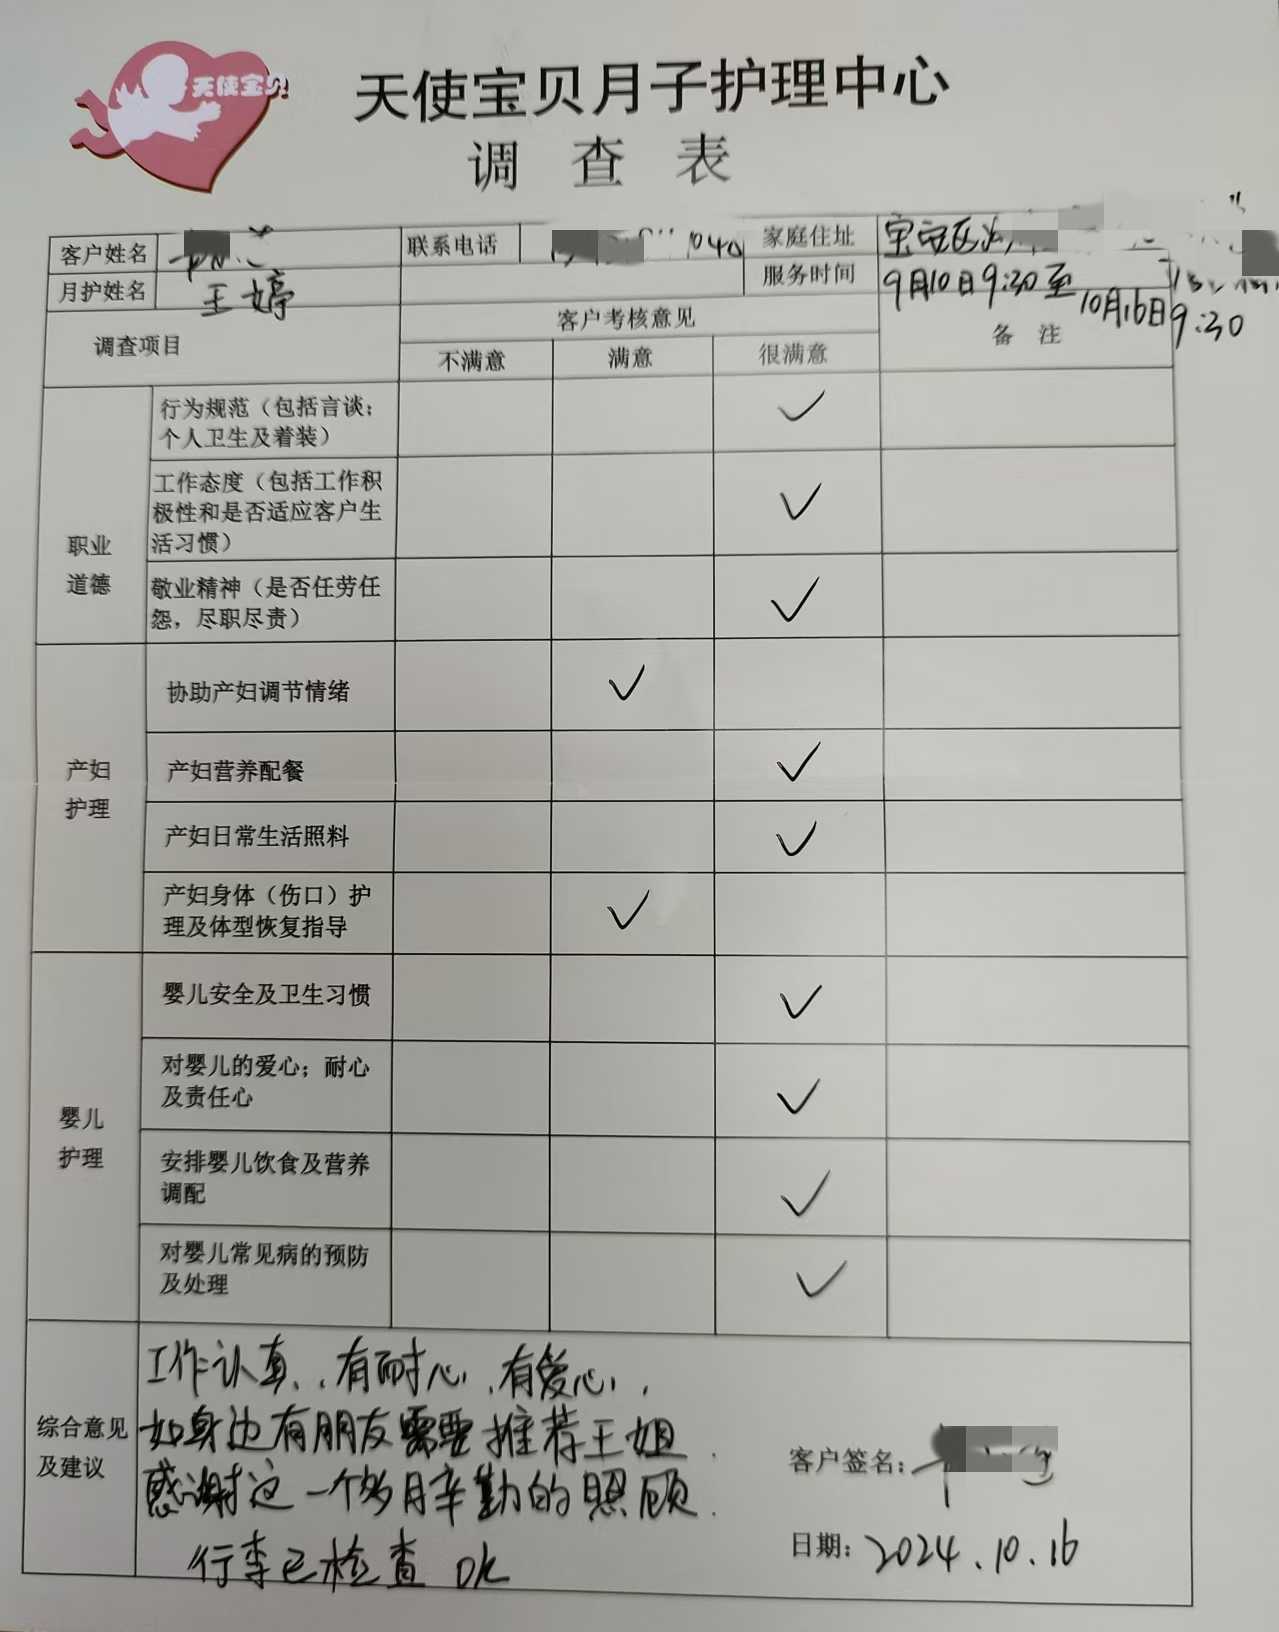 天使宝贝
天使宝贝月子护理中心
调 查 表
客户姓名 联系电话 家庭住址 宝安区
月护姓名 王婷 服务时间 9月10日9:30至10月16日9:30
调查项目 客户考核意见 备 注
不满意 满意 很满意
职业道德
行为规范（包括言谈；
个人卫生及着装） ✓
工作态度（包括工作积
极性和是否适应客户生
活习惯） ✓
敬业精神（是否任劳任
怨，尽职尽责） ✓
产妇护理
协助产妇调节情绪 ✓
产妇营养配餐 ✓
产妇日常生活照料 ✓
产妇身体（伤口）护
理及体型恢复指导 ✓
婴儿护理
婴儿安全及卫生习惯 ✓
对婴儿的爱心；耐心
及责任心 ✓
安排婴儿饮食及营养
调配 ✓
对婴儿常见病的预防
及处理 ✓
综合意见
及建议
工作认真、有耐心、有爱心，
如身边有朋友需要推荐王姐.
感谢这一个多月辛勤的照顾.
行李已检查 OK
客户签名：
日期：2024.10.16